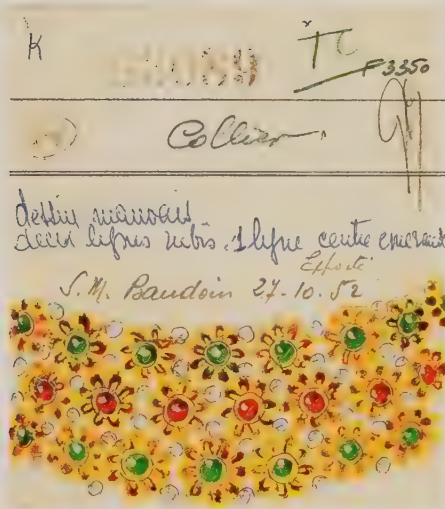 K
TC
F 3350
Collier
dessin mauvais
deux lignes rubis. 1 ligne centre emeraude
Exporté
S.M. Baudoin 27-10-52